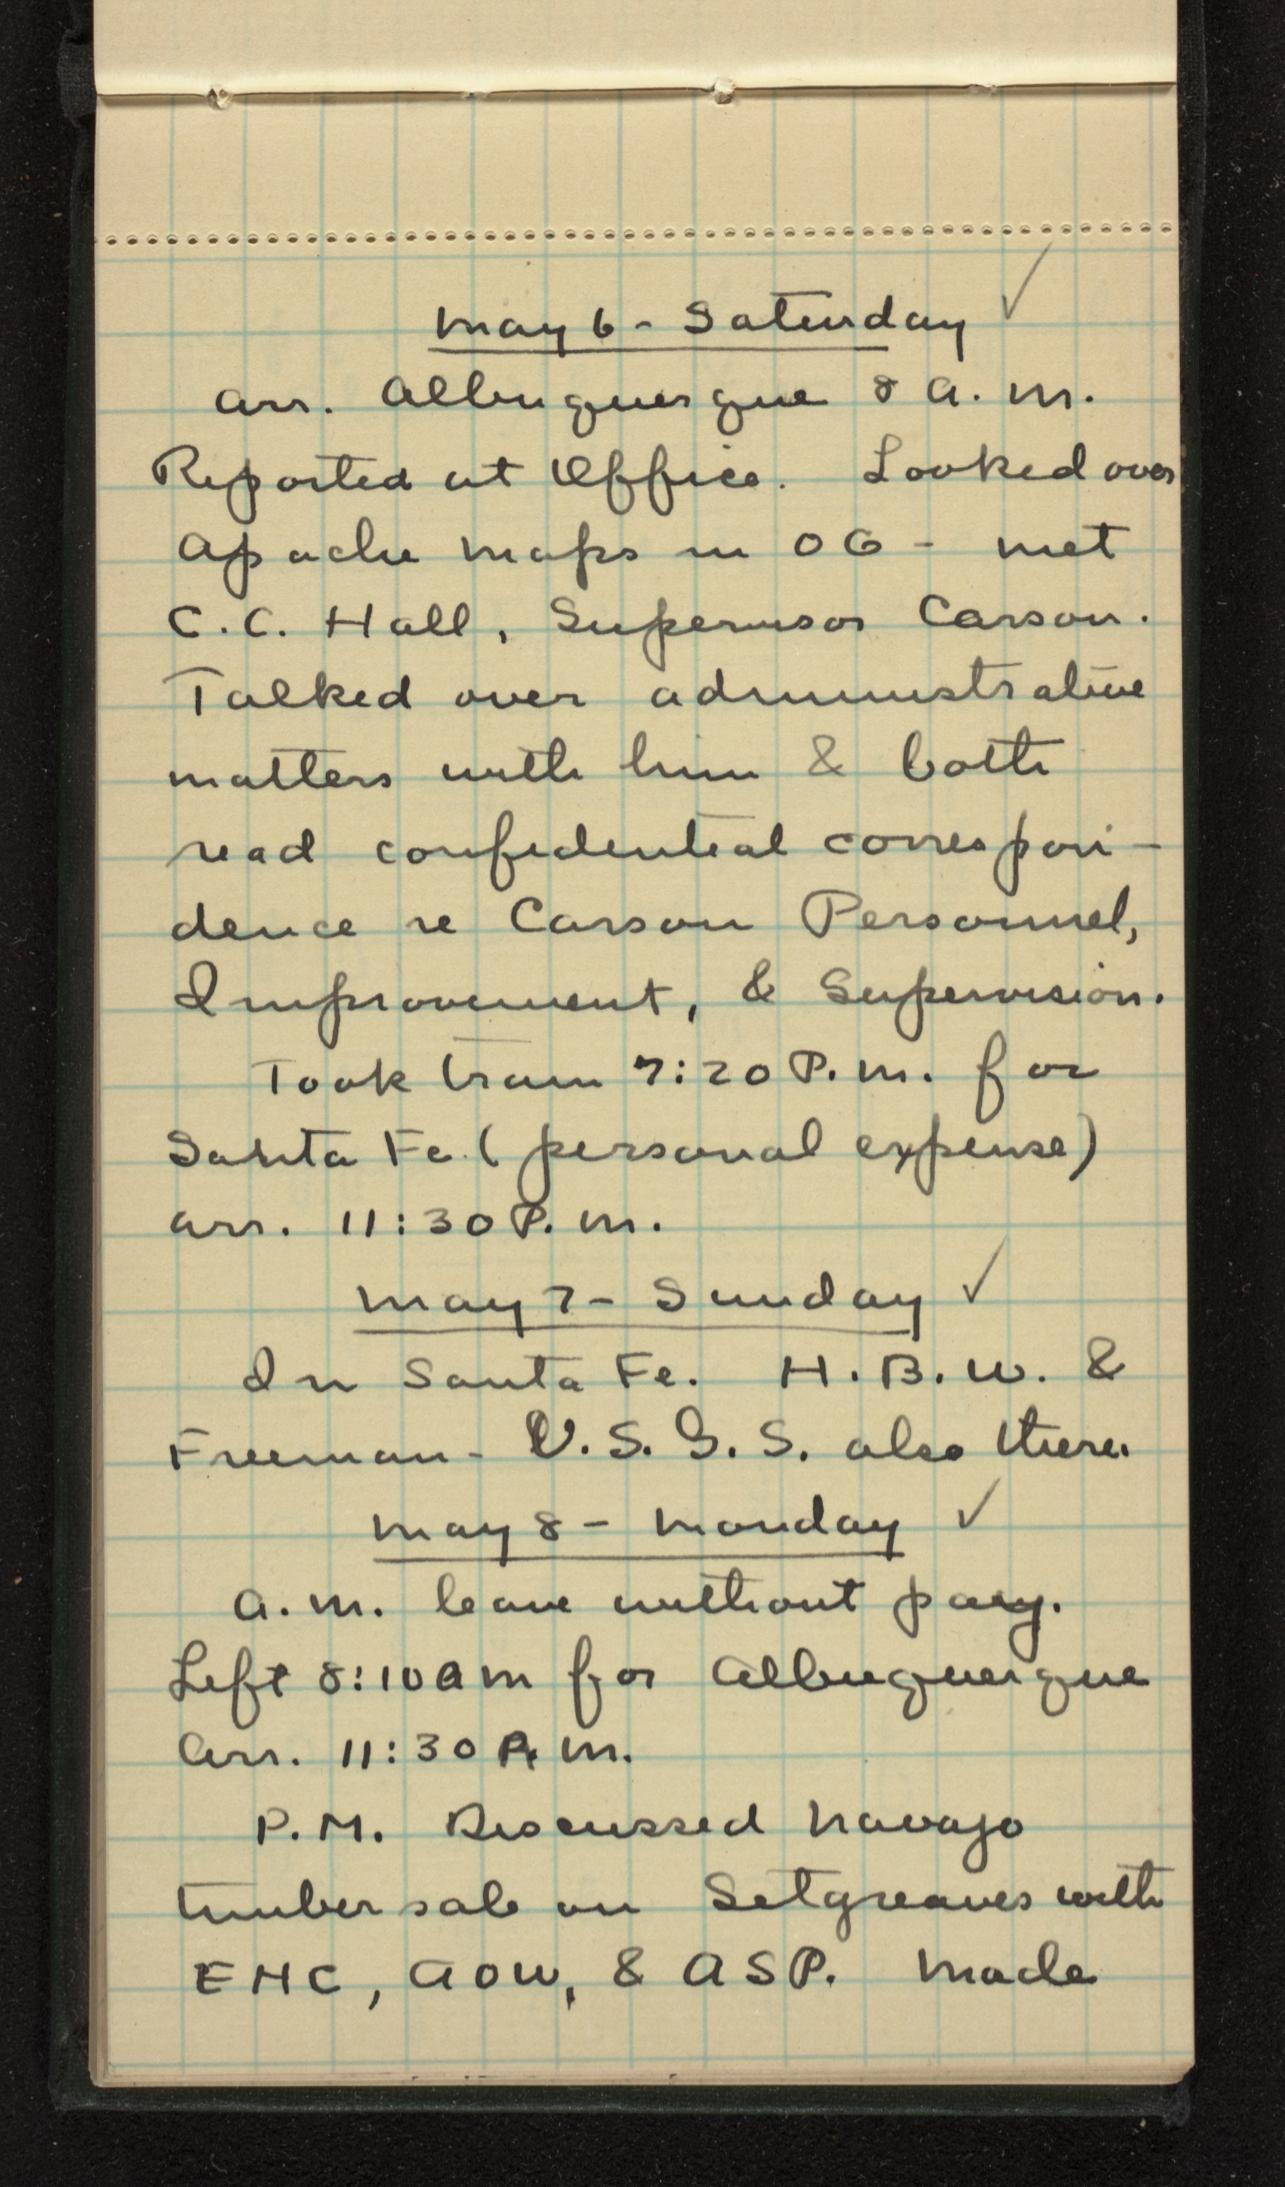 May 6 - Saturday ✓
Arr. Albuquerque 8 A.M.
Reported at Office. Looked over
Apache maps in OG - met
C.C. Hall, Supervisor Carson.
Talked over administrative
matters with him & both
read confidential correspon-
dence re Carson Personnel,
Improvement, & Supervision.
Took train 7:20 P.M. for
Santa Fe (personal expense)
arr. 11:30 P.M.
May 7 - Sunday ✓
In Santa Fe. H.B.W. &
Freeman - U.S.G.S. also there.
May 8 - Monday ✓
A.M. leave without pay.
Left 8:10 AM for Albuquerque
Arr. 11:30 A.M.
P.M. Discussed Navajo
timber sale on Sitgreaves with
EHC, AOW, & ASP. Made